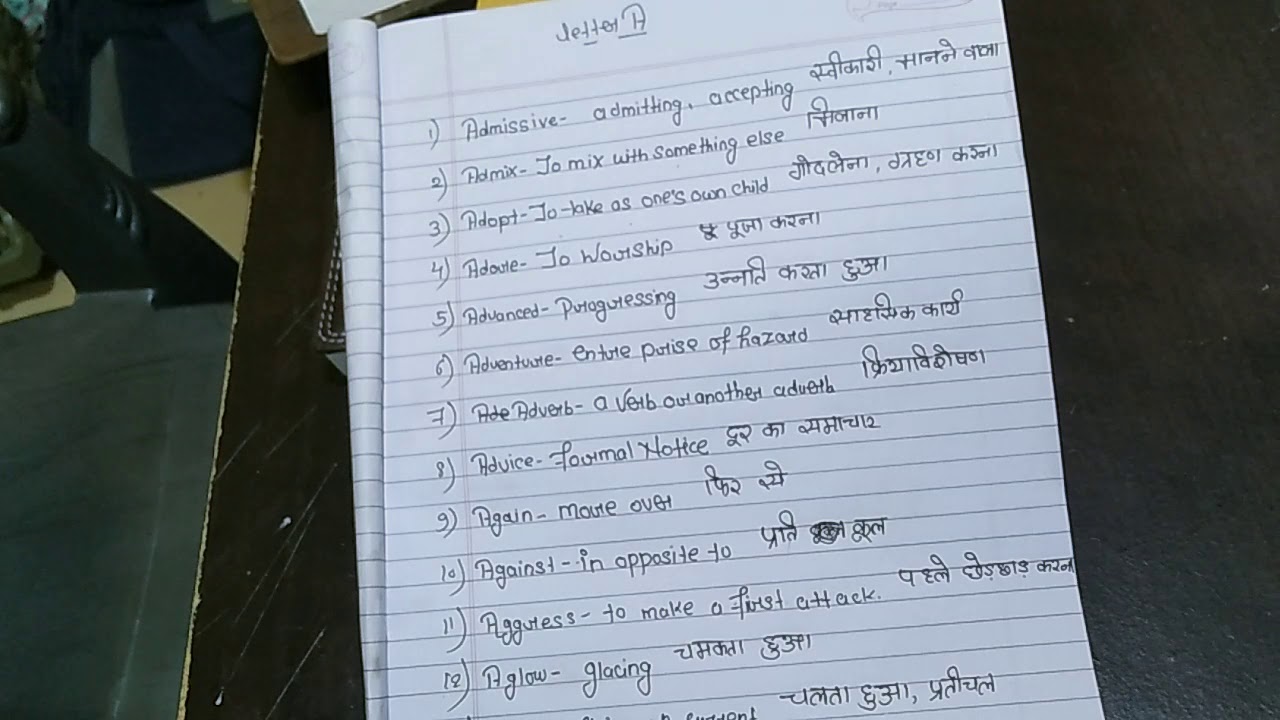 Letter A
1) Admissive- admitting, accepting स्वीकारी, मानने वाला
2) Admix- To mix with something else मिलाना
3) Adopt- To take as one's own child गोदलेना, ग्रहण करना
4) Adore- To Worship पूजा करना
5) Advanced- Progressing उन्नति करता हुआ
6) Adventure- enture prise of hazard साहसिक कार्य
7) Adverb- a verb or another adverb क्रियाविशेषण
8) Advice- formal Notice दूर का समाचार
9) Again- more over फिर से
10) Against- in opposite to प्रति कूल
11) Aggress- to make a first attack. पहले छेड़छाड़ करना
12) Aglow- glacing चमकता हुआ
current चलता हुआ, प्रतीचल